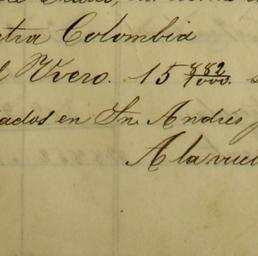 tra Colombia
l Uvero. 15 882/1000.
ados en Sn. Andrés
A la vuel